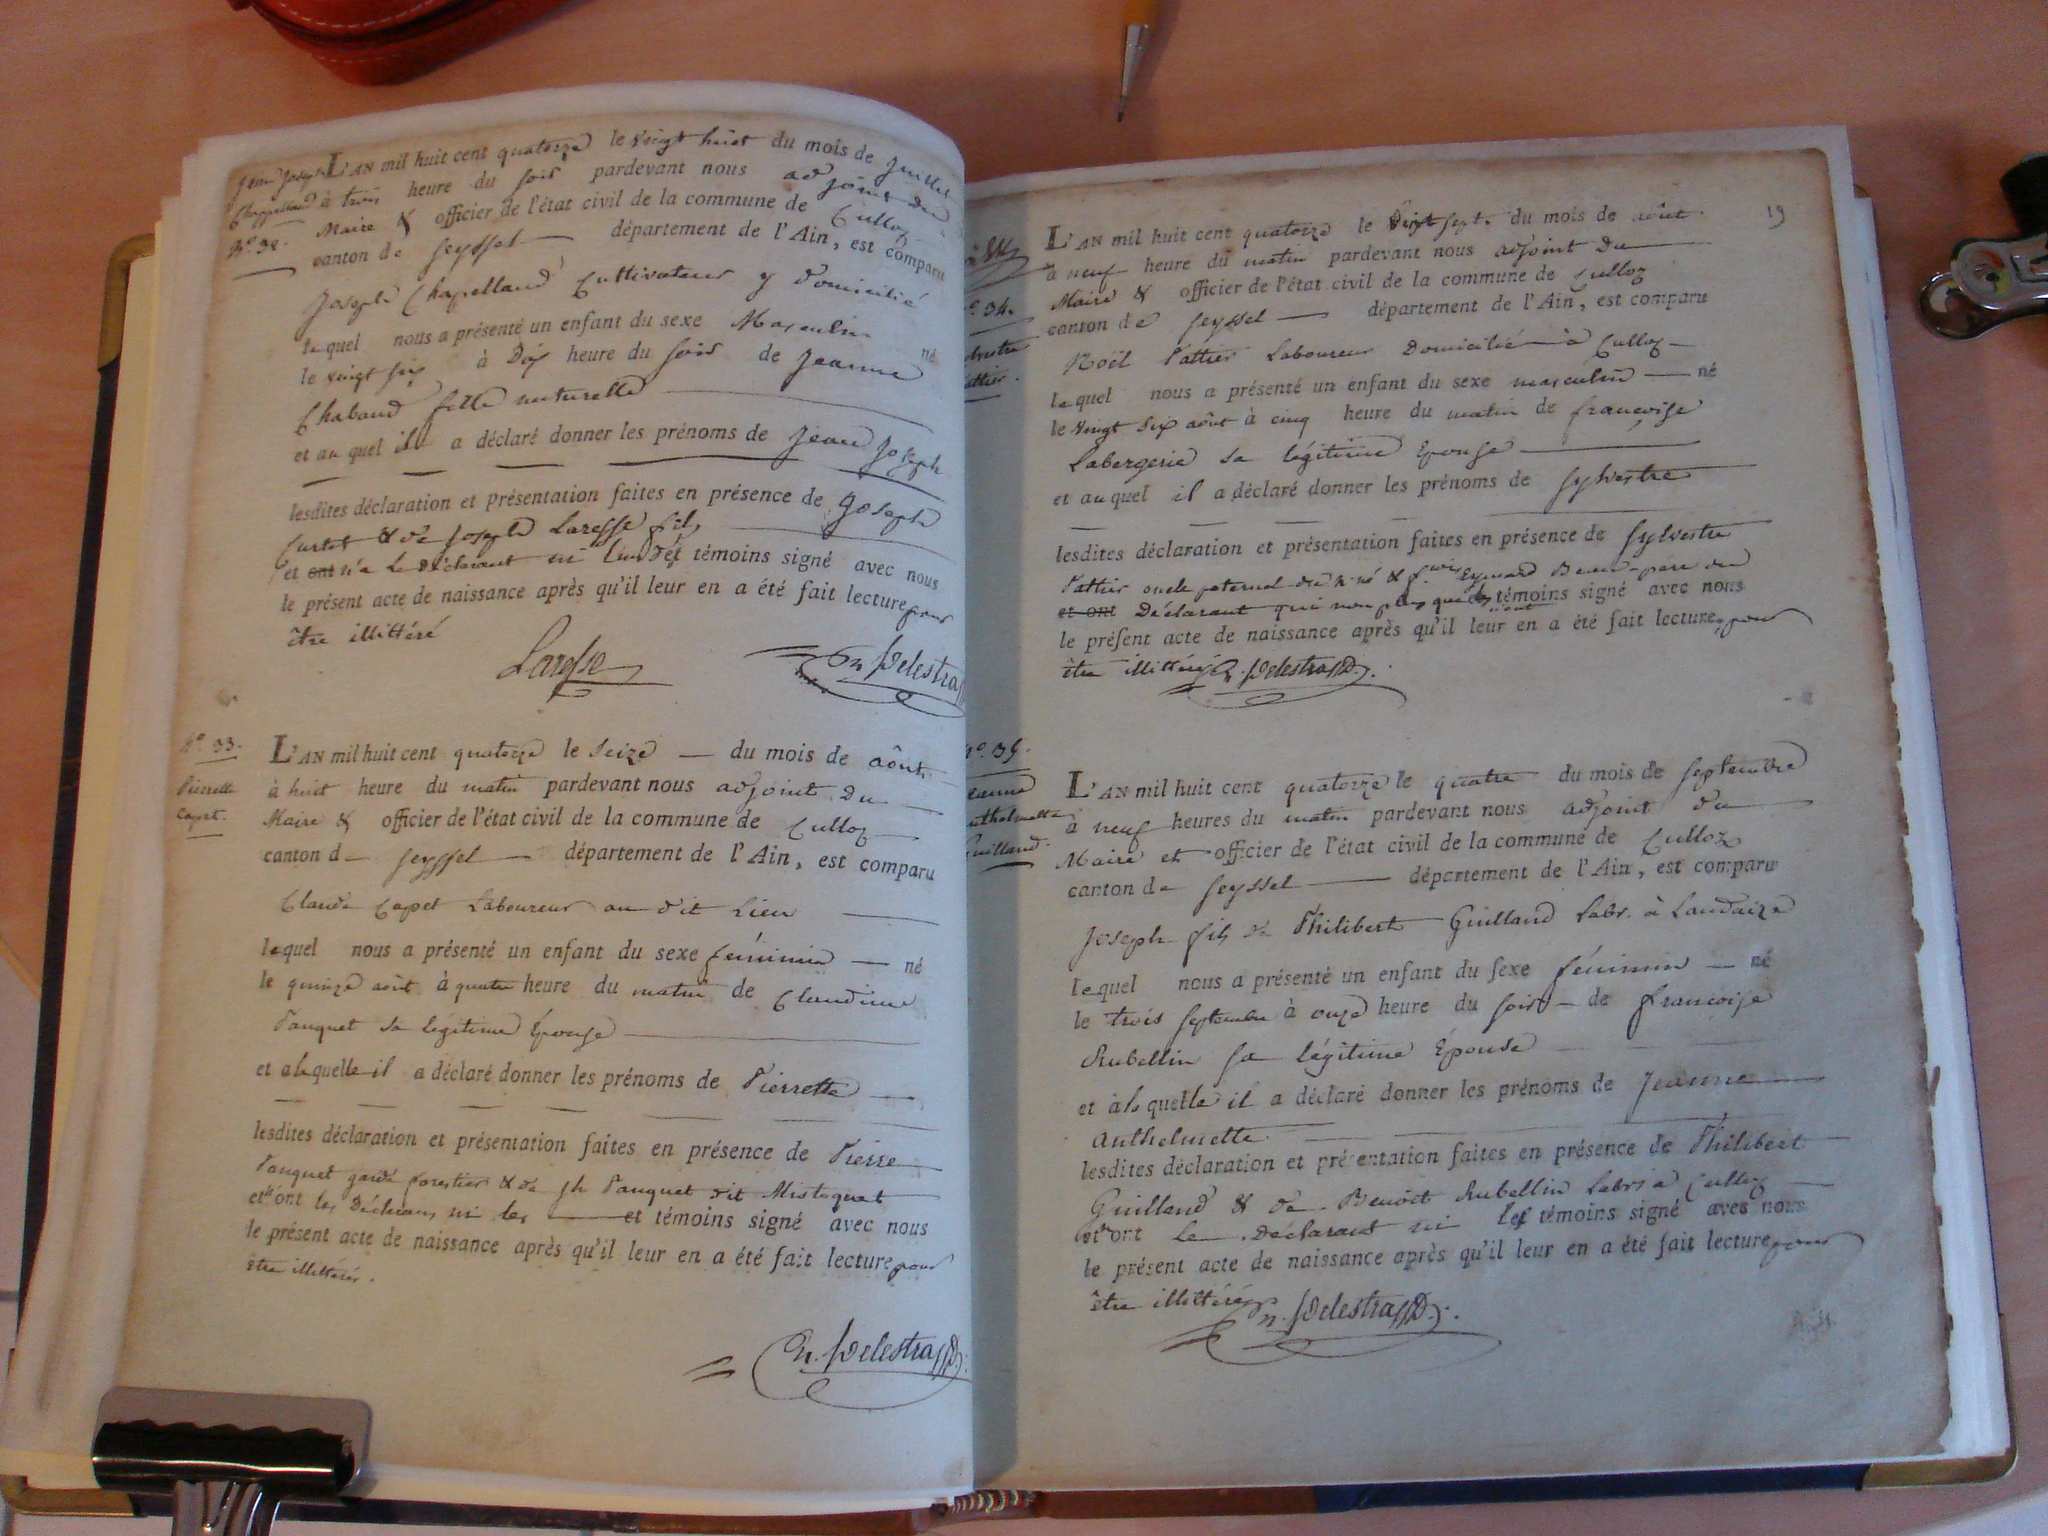 Jean Joseph
Chappelland
N.° 32.
L'AN mil huit cent quatorze le vingt huit du mois de juillet
à trois heure du soir pardevant nous adjoint du
Maire & officier de l'état civil de la commune de Culloz
canton de Seyssel département de l'Ain, est comparu
Joseph Chapelland Cultivateur y domicilié
lequel nous a présenté un enfant du sexe Masculin né
le vingt six à Dix heure du soir de Jeanne
Chaband fille naturelle
et au quel il a déclaré donner les prénoms de Jean Joseph
lesdites déclaration et présentation faites en présence de Joseph
Curtet & de Joseph Laresse fils
et ont n'a le Déclarant ni témoins signé avec nous
le présent acte de naissance après qu'il leur en a été fait lecture pour
être illittéré
Laresse
Delestra
N.° 33.
Pierrette
Capet.
L'AN mil huit cent quatorze le seize du mois de août
à huit heure du matin pardevant nous adjoint du
Maire & officier de l'état civil de la commune de Culloz
canton de Seyssel département de l'Ain, est comparu
Claude Capet Laboureur au dit Lieu
lequel nous a présenté un enfant du sexe féminin né
le quinze août à quatre heure du matin de Claudine
Pauquet sa légitime Epouse
et à laquelle il a déclaré donner les prénoms de Pierrette
lesdites déclaration et présentation faites en présence de Pierre
Pauquet garde forestier & de jh Pauquet dit Mistoquet
et ont les Déclarans ni les et témoins signé avec nous
le présent acte de naissance après qu'il leur en a été fait lecture pour
être illittérés.
19
° 34.
lvestre
attier.
L'AN mil huit cent quatorze le vingt sept du mois de août
à neuf heure du matin pardevant nous adjoint du
Maire & officier de l'état civil de la commune de Culloz
canton de Seyssel département de l'Ain, est comparu
Noël Pattier Laboureur Domicilié à Culloz
lequel nous a présenté un enfant du sexe masculin né
le vingt six août à cinq heure du matin de françoise
Labergerie sa légitime Epouse
et au quel il a déclaré donner les prénoms de Sylvestre
lesdites déclaration et présentation faites en présence de Sylvestre
Pattier oncle paternel du n. né & f.çois Eymard Beau-père du
et ont Déclarant qui non plus que les témoins n'ont signé avec nous
le présent acte de naissance après qu'il leur en a été fait lecture, pour
être illittérés
N.° 35.
eanne
nthelmette
Guilland.
L'AN mil huit cent quatorze le quatre du mois de septembre
à neuf heures du matin pardevant nous adjoint du
Maire et officier de l'état civil de la commune de Culloz
canton de Seyssel département de l'Ain, est comparu
Joseph fils de Philibert Guilland Labr. à Landaize
lequel nous a présenté un enfant du sexe féminin né
le trois septembre à onze heure du soir de françoise
Rubellin sa légitime Epouse
et à la quelle il a déclaré donner les prénoms de Jeanne
Anthelmette
lesdites déclaration et présentation faites en présence de Philibert
Guilland & de Benoît Rubellin Labrs à Culloz
et ont le Déclarant ni les témoins signé avec nous
le présent acte de naissance après qu'il leur en a été fait lecture, pour
être illittérés